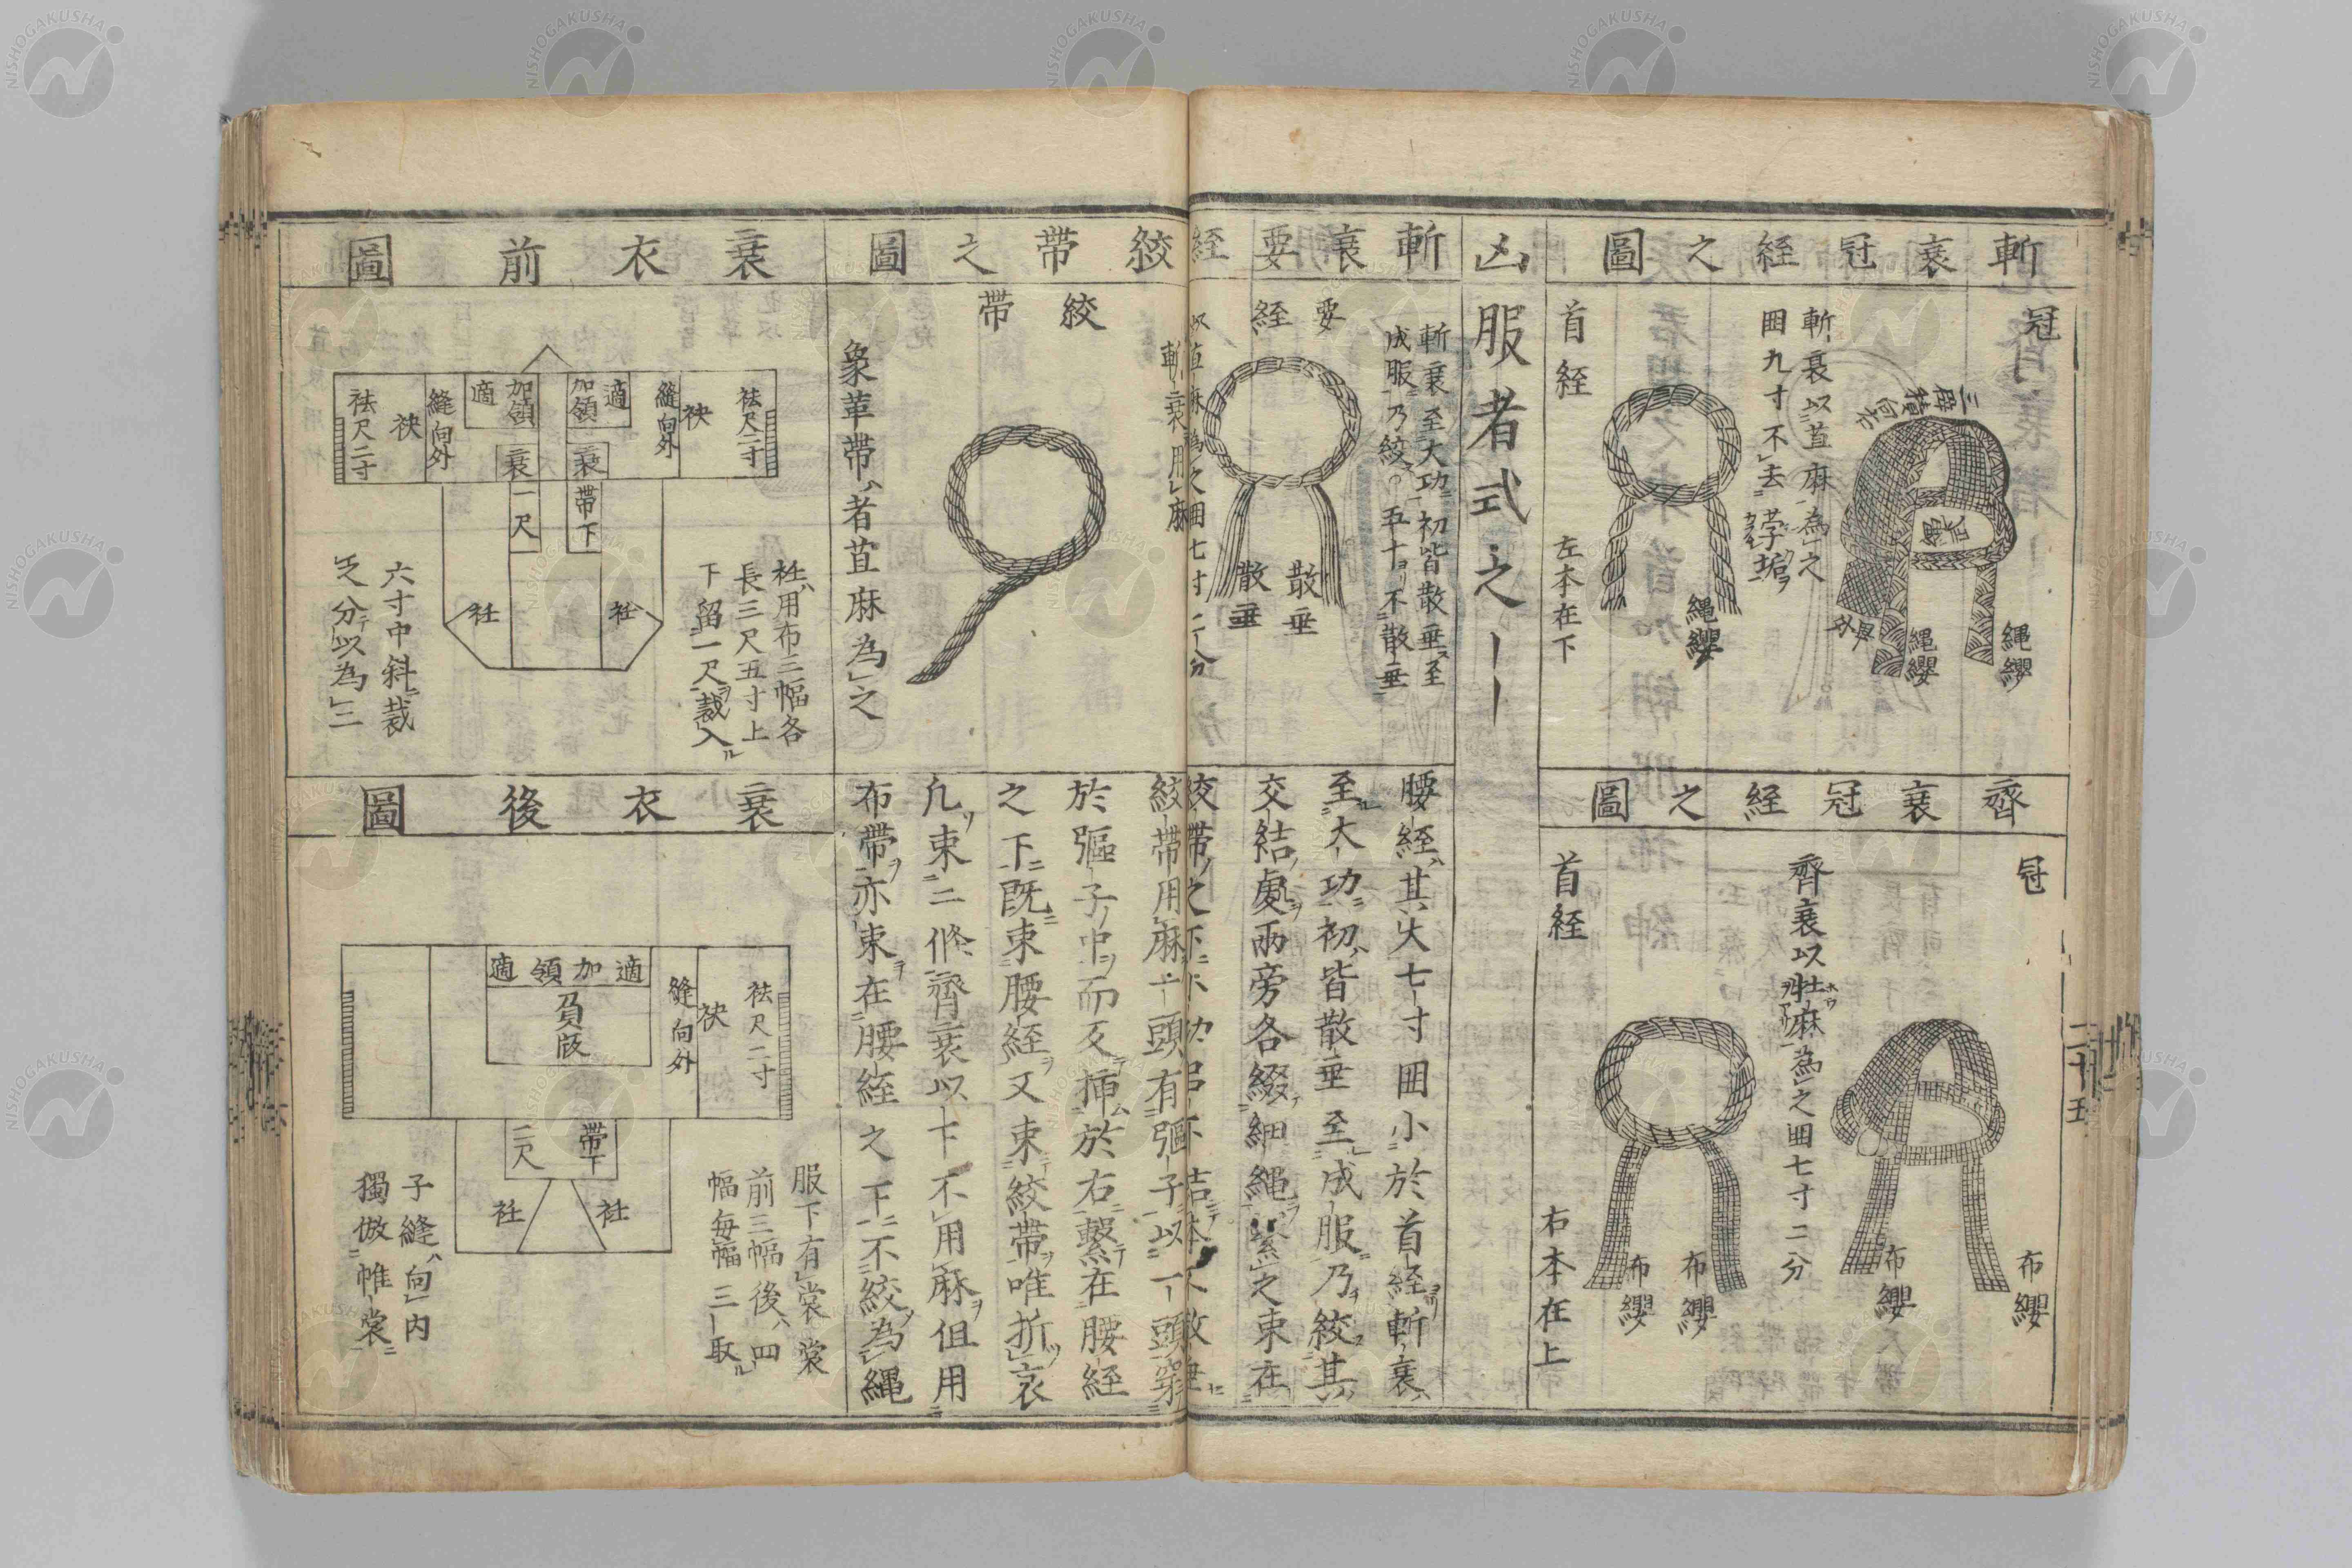 斬衰冠絰之圖
冠
三辟積向右
繩纓
繩纓
外畢
斬衰以苴麻為之
囲九寸不去莩垢
首絰
繩纓
左本在下
齊衰冠絰之圖
冠
布纓
布纓
齊衰以牡麻為之囲七寸二分
首絰
布纓
布纓
右本在上
二十五
凶服者式之｜｜
斬衰要絰
斬衰至大功初皆散垂至
成服乃絞五十不散垂
要絰
散垂
散垂
以苴麻為之囲七寸二分
腰絰其大七寸囲小於首絰斬衰
至大功初皆散垂至成服乃絞其
交結處兩旁各綴細繩繫之束在
絞帶之圖
斬衰用麻
絞帶
象革帶者苴麻為之
絞帶用麻一頭有彄子以一頭穿
於彄子中而又挿於右繫在腰絰
之下既束腰絰又束絞帶唯折衰
凡束二條齊衰以下不用麻但用
布帶亦束在腰絰之下不絞為繩
衰衣前圖
袪尺二寸
袂
縫向外
適
加領
衰
帶下
加領
適
衰
一尺
縫向外
袂
袪尺二寸
衽
衽
衽用布三幅各
長三尺五寸上
下留一尺裁入
六寸中斜裁
之分以為二
衰衣後圖
袪尺二寸
袂
縫向外
適加領適
負版
帶下
二尺
衽
衽
服下有裳裳
前三幅後四
幅每幅三取
子縫向内
獨倣帷裳
NISHOGAKUSHA